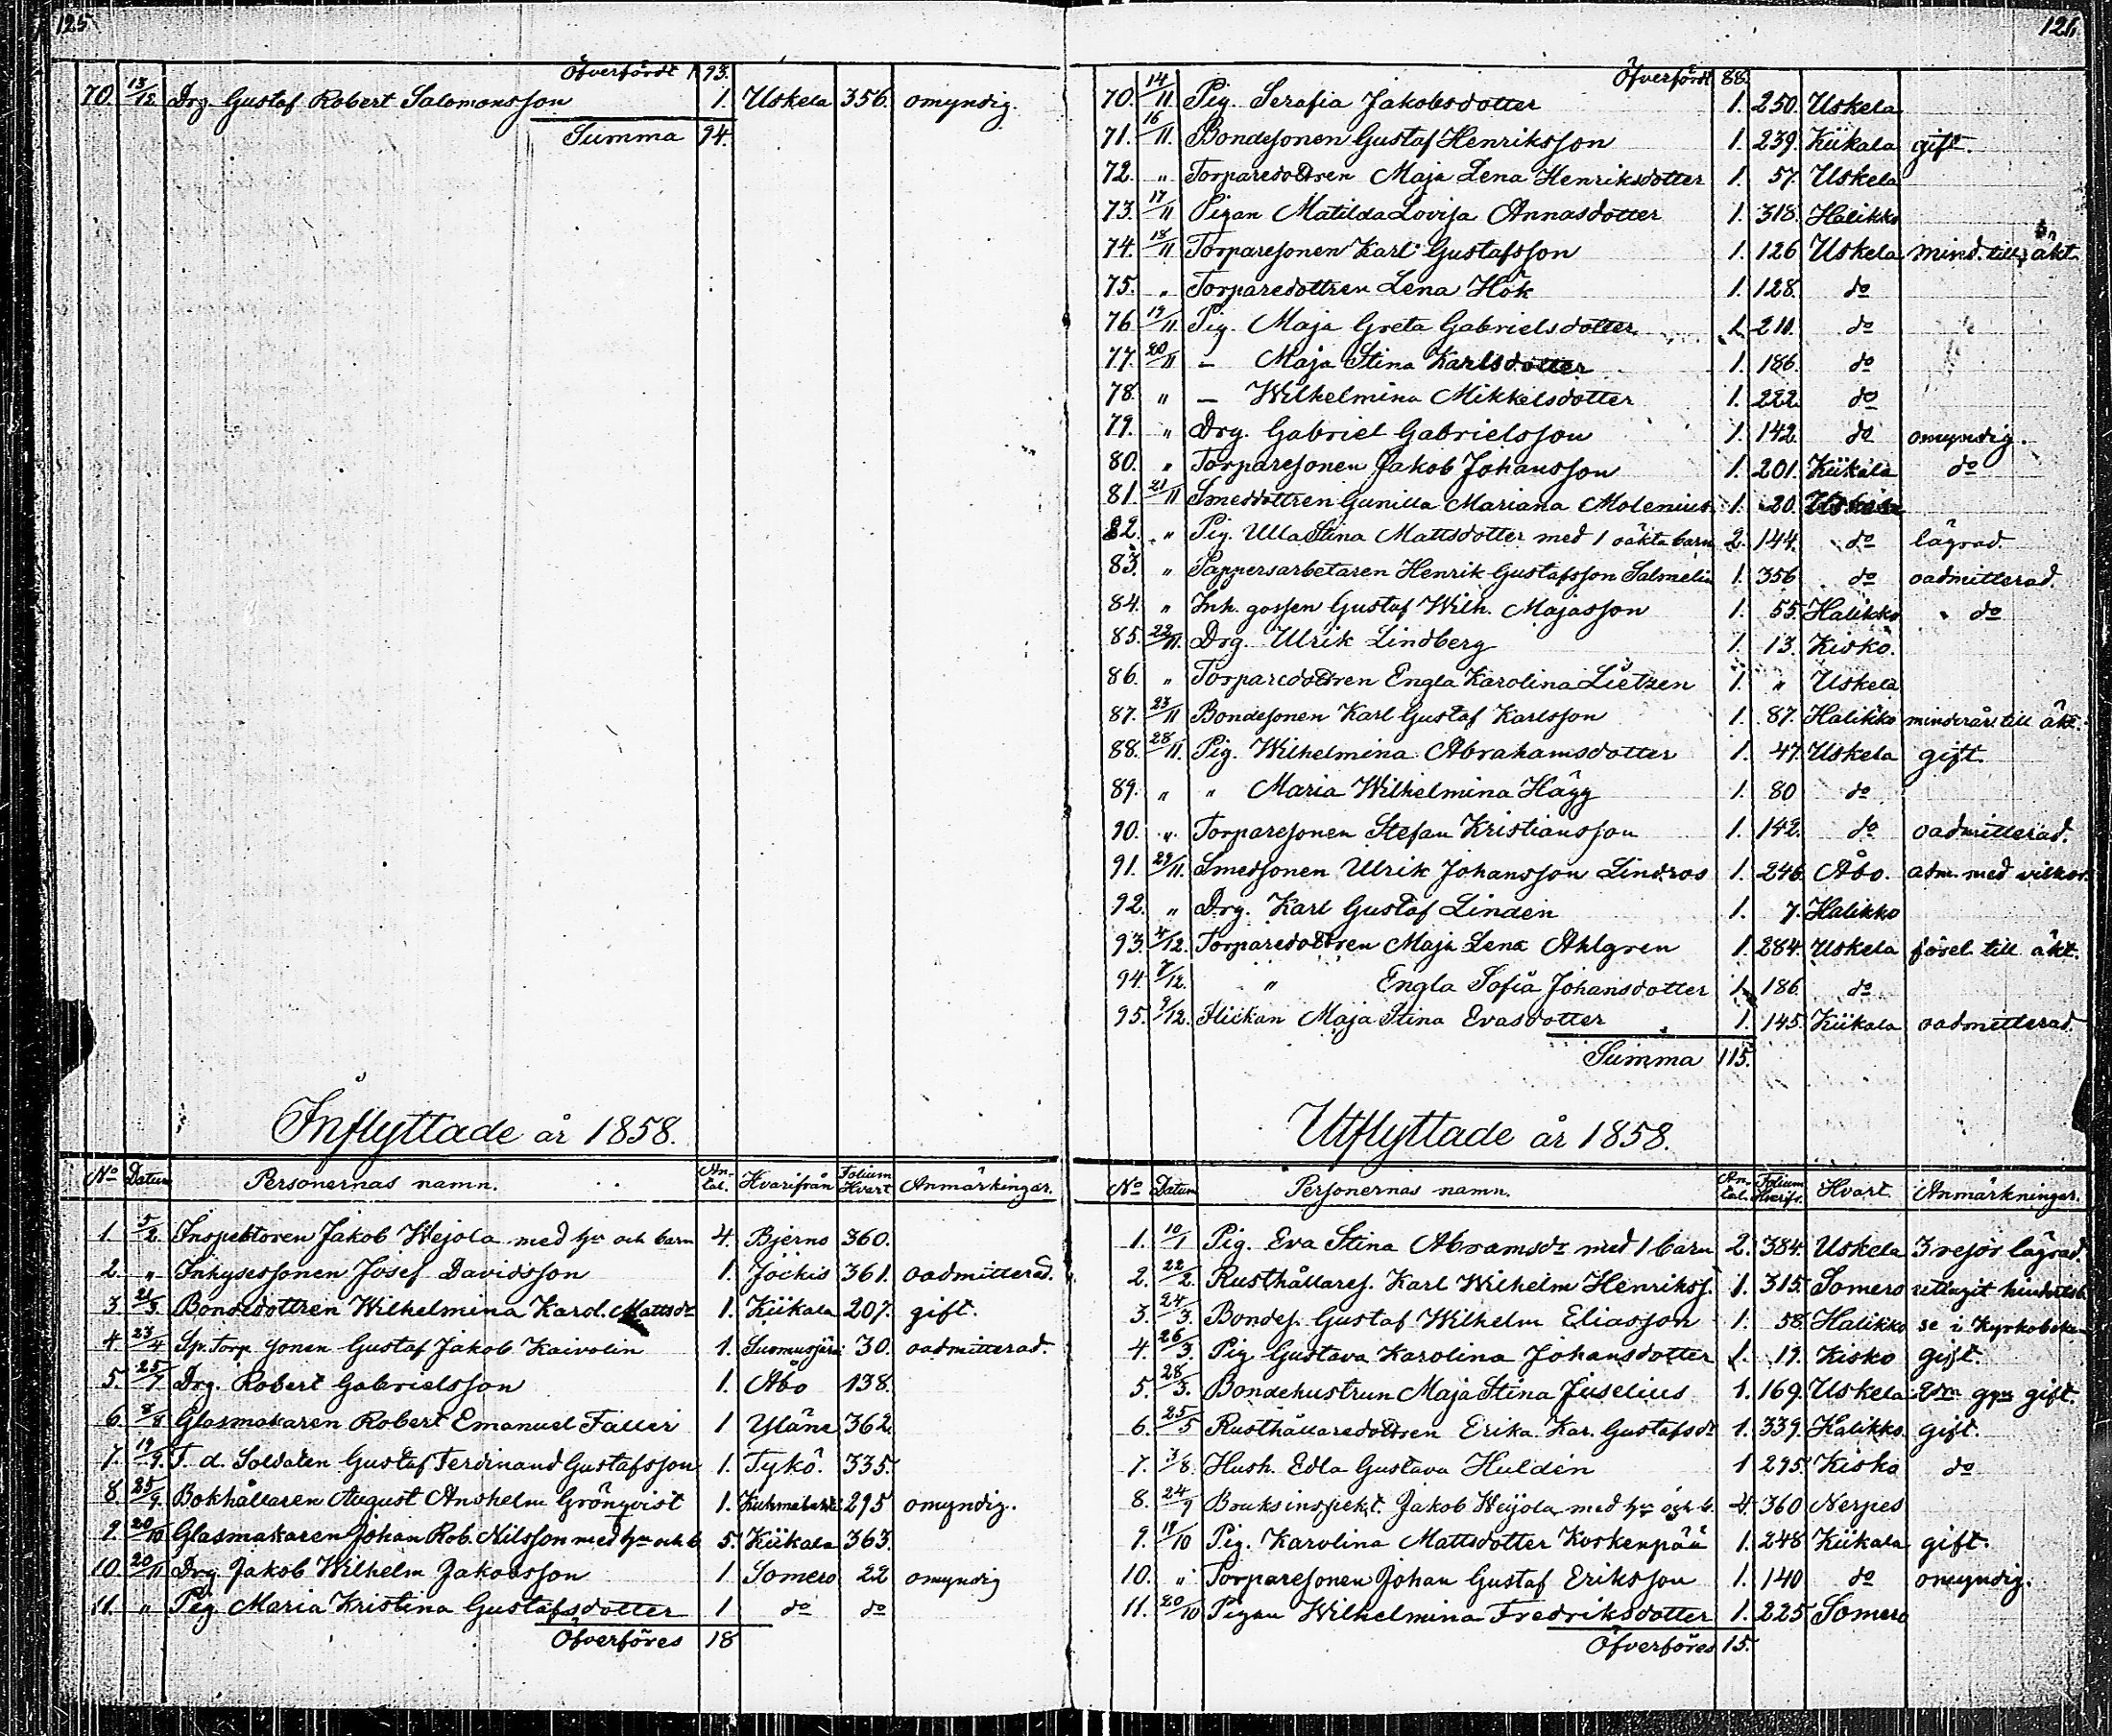 125.
Öfverfördt 93.
70. 13/12 Drg. Gustaf Robert Salomonsson 1. Uskela 356. omyndig.
Summa 94.
Inflyttade år 1858.
No Datum Personernas namn. Antal. Hvarifrån Folium Hvart Anmärkingar.
1 5/2 Inspektoren Jakob Wejola med hu och barn 4. Bjerno 360.
2. " Inhysessonen Josef Davidsson 1. Jockis 361. oadmitterad.
3. 21/3 Bondedottren Wilhelmina Karol. Mattsdr 1. Kiikala 207. gift.
4. 23/4 Sp. Torp sonen Gustaf Jakob Kaivolin 1. 30. oadmitterad.
5. 25/7 Drg. Robert Gabrielsson 1. Åbo 138.
6. 8/8 Glasmakaren Robert Emanuel Faller 1 Yläne 362.
7. 19/9. F. d. Soldaten Gustaf Ferdinand Gustafsson 1. Tykö. 335.
8. 25/9. Bokhållaren August Anshelm Grönqvist 1. 295 omyndig.
9. 20/10 Glasmakaren Johan Rob. Nilsson med hu och b 5. Kiikala 363.
10. 20/11 Drg. Jakob Wilhelm Jakobsson 1 Somero 22 omyndig
11. " Pig. Maria Kristina Gustafsdotter 1 do do
Öfverföres 18
126
Öfverfördt 88.
70. 14/11 Pig. Serafia Jakobsdotter 1. 250. Uskela
71. 16/11. Bondesonen Gustaf Henriksson 1. 239. Kiikala gift.
72. " Torparedottren Maja Lena Henriksdotter 1. 57. Uskela
73. 17/11 Pigan Matilda Lovisa Annasdotter 1. 318. Halikko
74. 18/11 Torparesonen Karl Gustafsson 1. 126 Uskela mind. till äkt.
75. " Torparedottren Lena Hök 1. 128. do
76 19/11. Pig. Maja Greta Gabrielsdotter 1. 211. do
77. 20/11 – Maja Stina Karlsdotter 1. 186. do
78. " – Wilhelmina Mikkelsdotter 1. 222 do
79. " Drg. Gabriel Gabrielsson 1. 142 do omyndig.
80. " Torparesonen Jakob Johansson 1. 201. Kiikala do
81. 21/11 Smeddottren Gunilla Mariana Molenius 1. 20. Uskela
82. " Pig. Ulla Stina Mattsdotter med 1 oäkta barn 2. 144. do lägrad.
83. " Pappersarbetaren Henrik Gustafsson Salmelin 1. 356 do oadmitterad.
84. " Inh. gossen Gustaf Wilh. Majasson 1. 55. Halikko do
85. 22/11. Drg. Ulrik Lindberg 1. 13. Kisko.
86. " Torparedottren Engla Karolina Lietzen 1. " Uskela
87. 23/11 Bondesonen Karl Gustaf Karlsson 1. 87. Halikko minderår. till äkt.
88. 28/11. Pig. Wilhelmina Abrahamsdotter 1. 47. Uskela gift.
89. " " Maria Wilhelmina Hägg 1. 80 do
90. " Torparesonen Stefan Kristiansson 1. 142. do oadmitterad.
91. 29/11. Smedsonen Ulrik Johansson Lindros 1. 246. Åbo. adm. med vilkor.
92. " Drg. Karl Gustaf Linden 1. 7. Halikko
93. 4/12. Torparedottren Maja Lena Ahlgren 1. 284. Uskela till äkt.
94. 7/12. " Engla Sofia Johansdotter 1. 186 do
95. 9/12. Flickan Maja Stina Evasdotter 1. 145. Kiikala oadmitterad.
Summa 115.
Utflyttade år 1858.
No Datum Personernas namn. Antal. Folium Hvarifr. Hvart. Anmärkningar.
1. 10/1 Pig. Eva Stina Abramsdr med 1 barn 2. 384. Uskela 3 resor lägrad.
2. 22/2. Rusthållares. Karl Wilhelm Henrikss. 1. 315. Somero
3. 24/3. Bondes. Gustaf Wilhelm Eliasson 1. 58. Halikko se i Kyrkoboken
4. 26/3. Pig Gustava Karolina Johansdotter 1. 19. Kisko gift.
5. 28/3. Bondehustrun Maja Stina Juselius 1. 169. Uskela 2dra ggn gift.
6. 25/5 Rusthållaredottren Erika Kar. Gustafsdr 1. 339. Halikko. gift.
7. 3/8. Hush. Edla Gustava Hulden 1 295. Kisko do
8. 24/9 Bruksinspekt. Jakob Weijola med hu och b. 4. 360 Nerpes
9. 19/10 Pig. Karolina Mattsdotter Koskenpää 1. 248 Kiikala gift.
10. " Torparesonen Johan Gustaf Eriksson 1. 140 do omyndig.
11. 20/10 Pigan Wilhelmina Fredriksdotter 1. 225 Somero
Öfverföres 15.